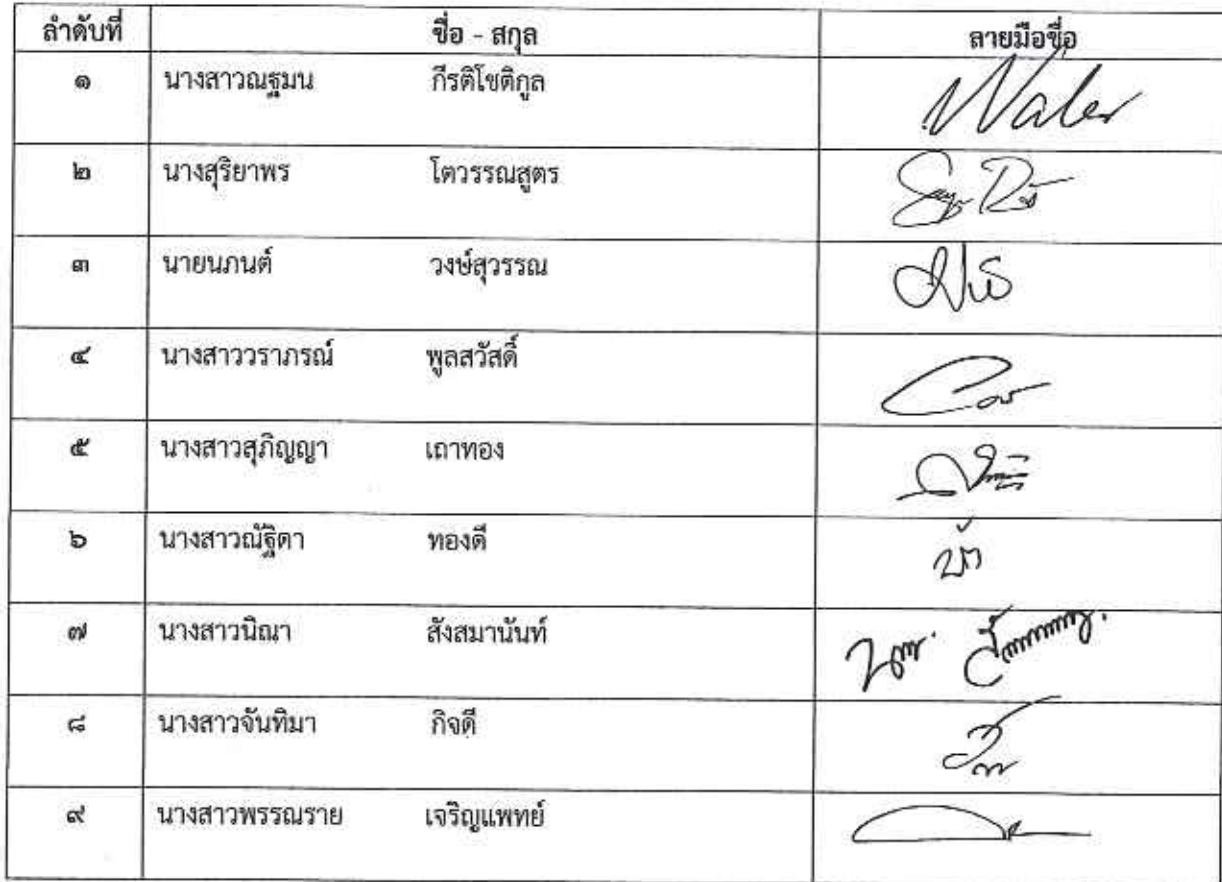 ลำดับที่ ชื่อ - สกุล ลายมือชื่อ
๑ นางสาวณฐมน กีรติโชติกูล
๒ นางสุริยาพร โตวรรณสูตร
๓ นายนภนต์ วงษ์สุวรรณ
๔ นางสาววราภรณ์ พูลสวัสดิ์
๕ นางสาวสุภิญญา เถาทอง
๖ นางสาวณัฐิดา ทองดี
๗ นางสาวนิณา สังสมานันท์
๘ นางสาวจันทิมา กิจดี
๙ นางสาวพรรณราย เจริญแพทย์